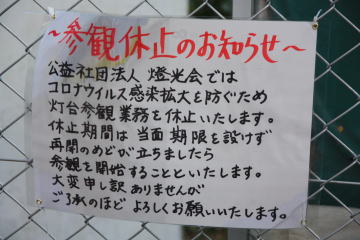 ～参観休止のお知らせ～
公益社団法人 燈光会では
コロナウイルス感染拡大を防ぐため
灯台参観業務を休止いたします。
休止期間は当面期限を設けず
再開のめどが立ちましたら
参観を開始することといたします。
大変申し訳ありませんが
ご了承のほどよろしくお願いいたします。